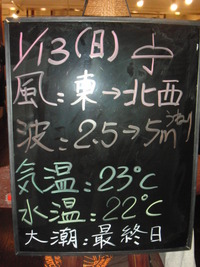 1/13(日)
風:東→北西
波:2.5→5mうねり
気温:23℃
水温:22℃
大潮:最終日